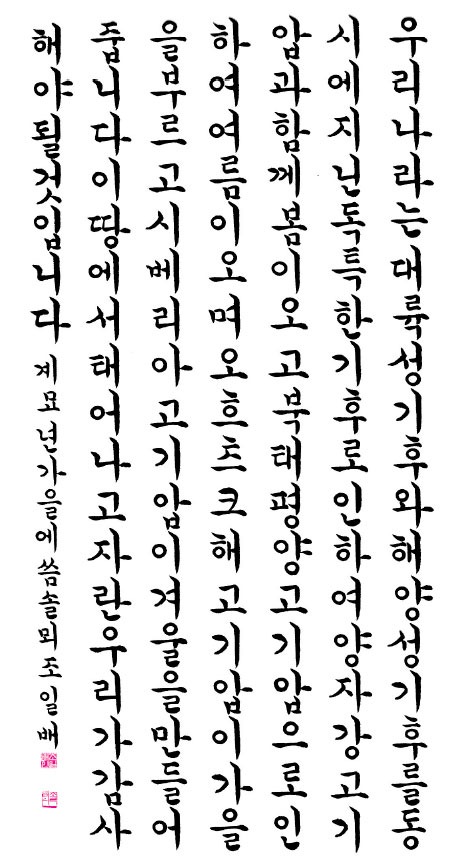 우리나라는대륙성기후와해양성기후를동
시에지닌독특한기후로인하여양자강고기
암과함께봄이오고북태평양고기암으로인
하여여름이오며오흐츠크해고기암이가을
을부르고시베리아고기암이겨울을만들어
줍니다이땅에서태어나고자란우리가감사
해야될것입니다 계묘년가을에씀솔뫼조일배